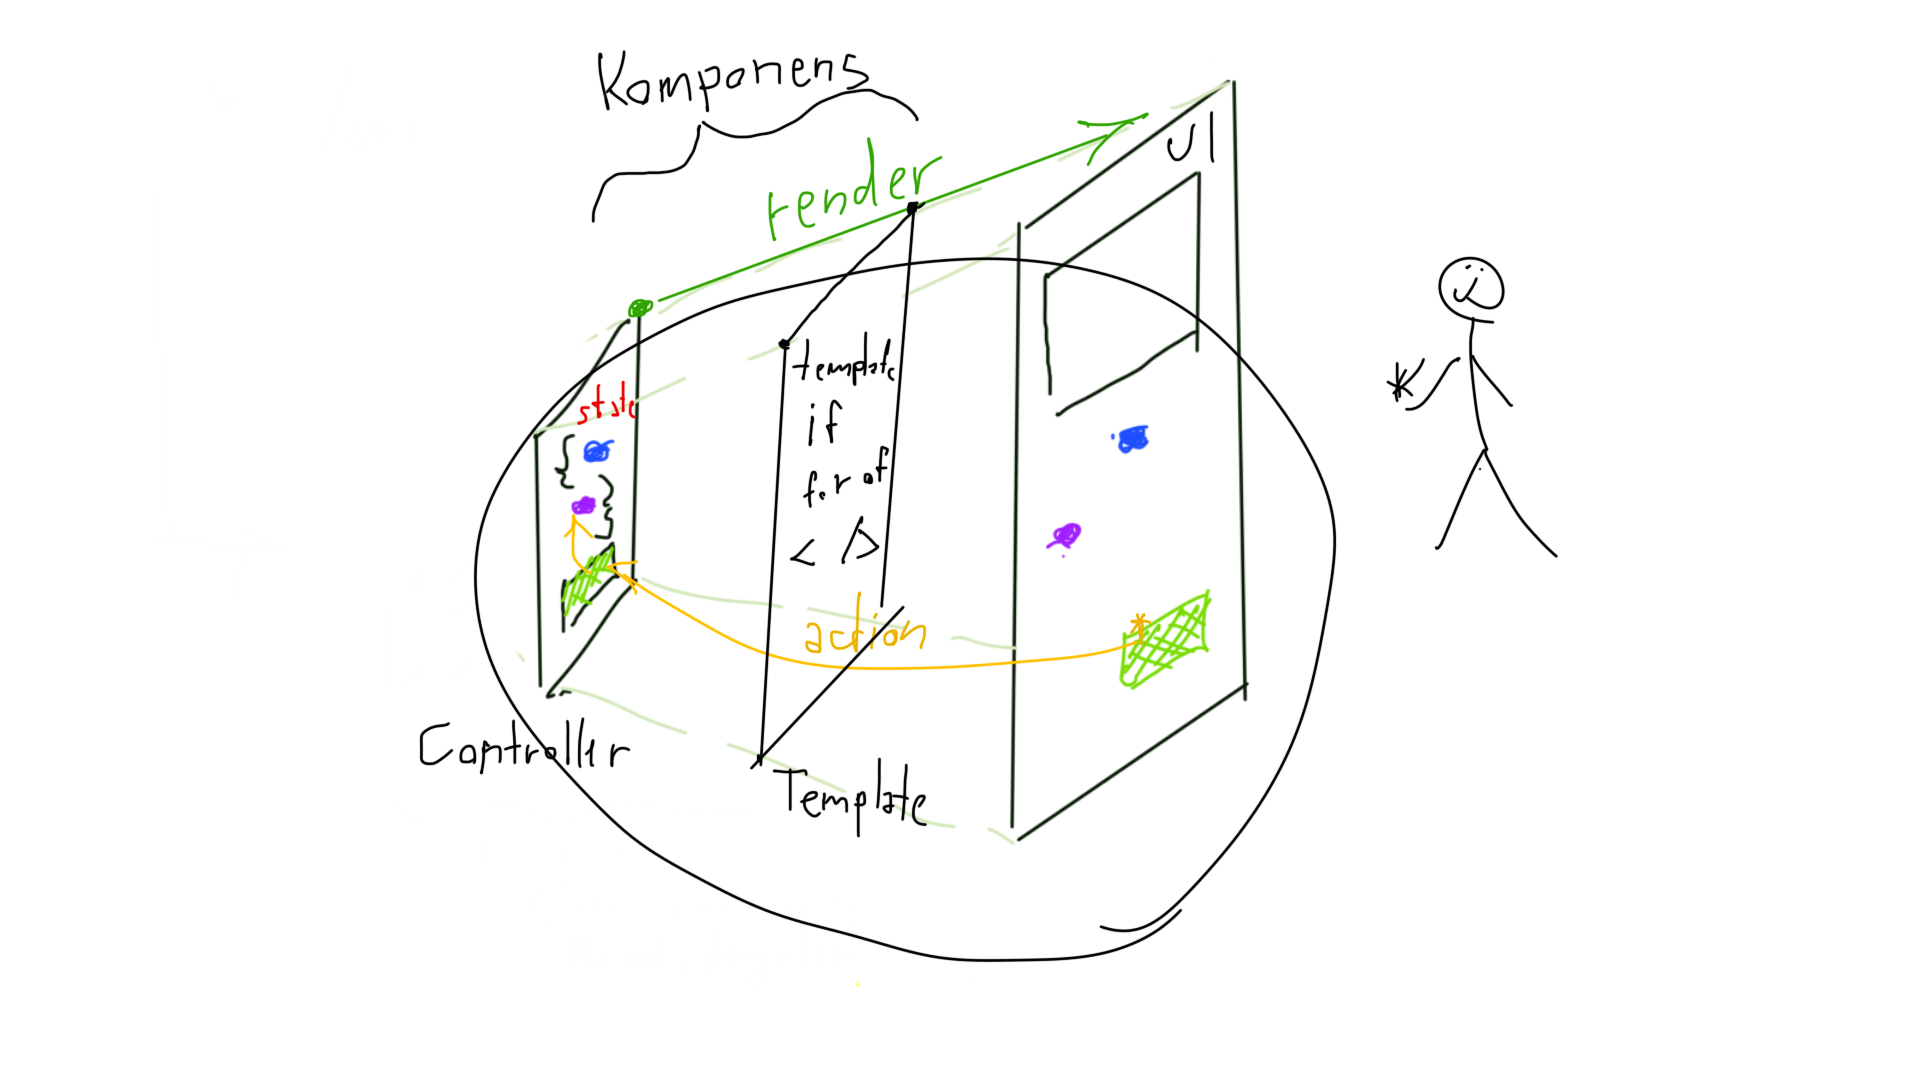 Komponens
render
UI
state
{
}
template
if
for of
< />
action
Controller
Template